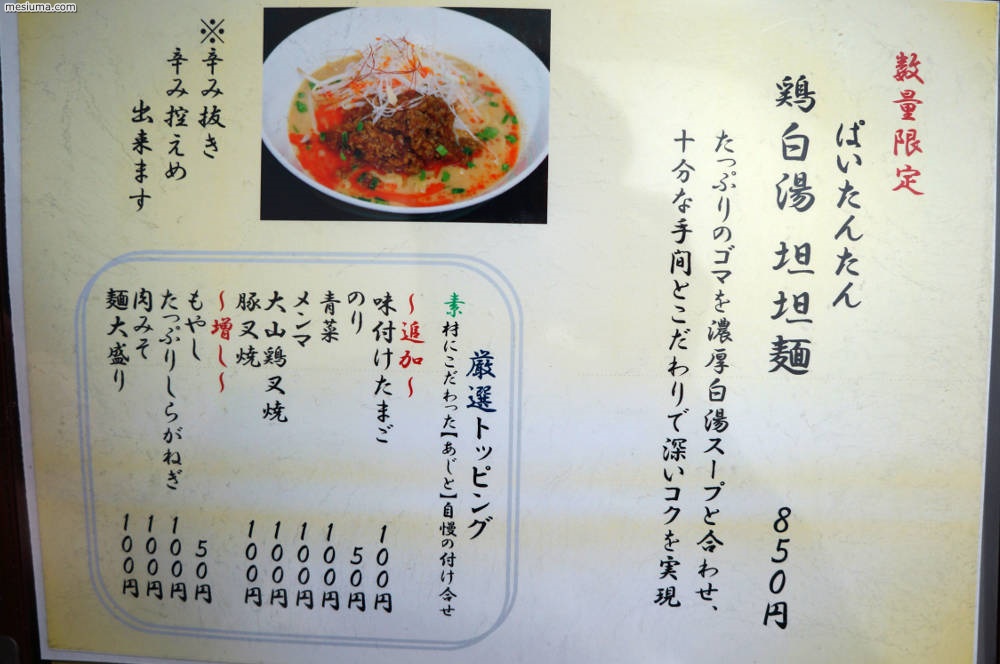 mesiuma.com
数量限定
ぱいたんたん
鶏白湯 坦坦麺 850円
たっぷりのゴマを濃厚白湯スープと合わせ、
十分な手間とこだわりで深いコクを実現
※辛み抜き
辛み控えめ
出来ます
厳選トッピング
素材にこだわった【あじと】自慢の付け合せ
～追加～
味付けたまご 100円
のり 50円
青菜 100円
メンマ 100円
大山鶏叉焼 100円
豚叉焼 100円
～増し～
もやし 50円
たっぷりしらがねぎ 100円
肉みそ 100円
麺大盛り 100円